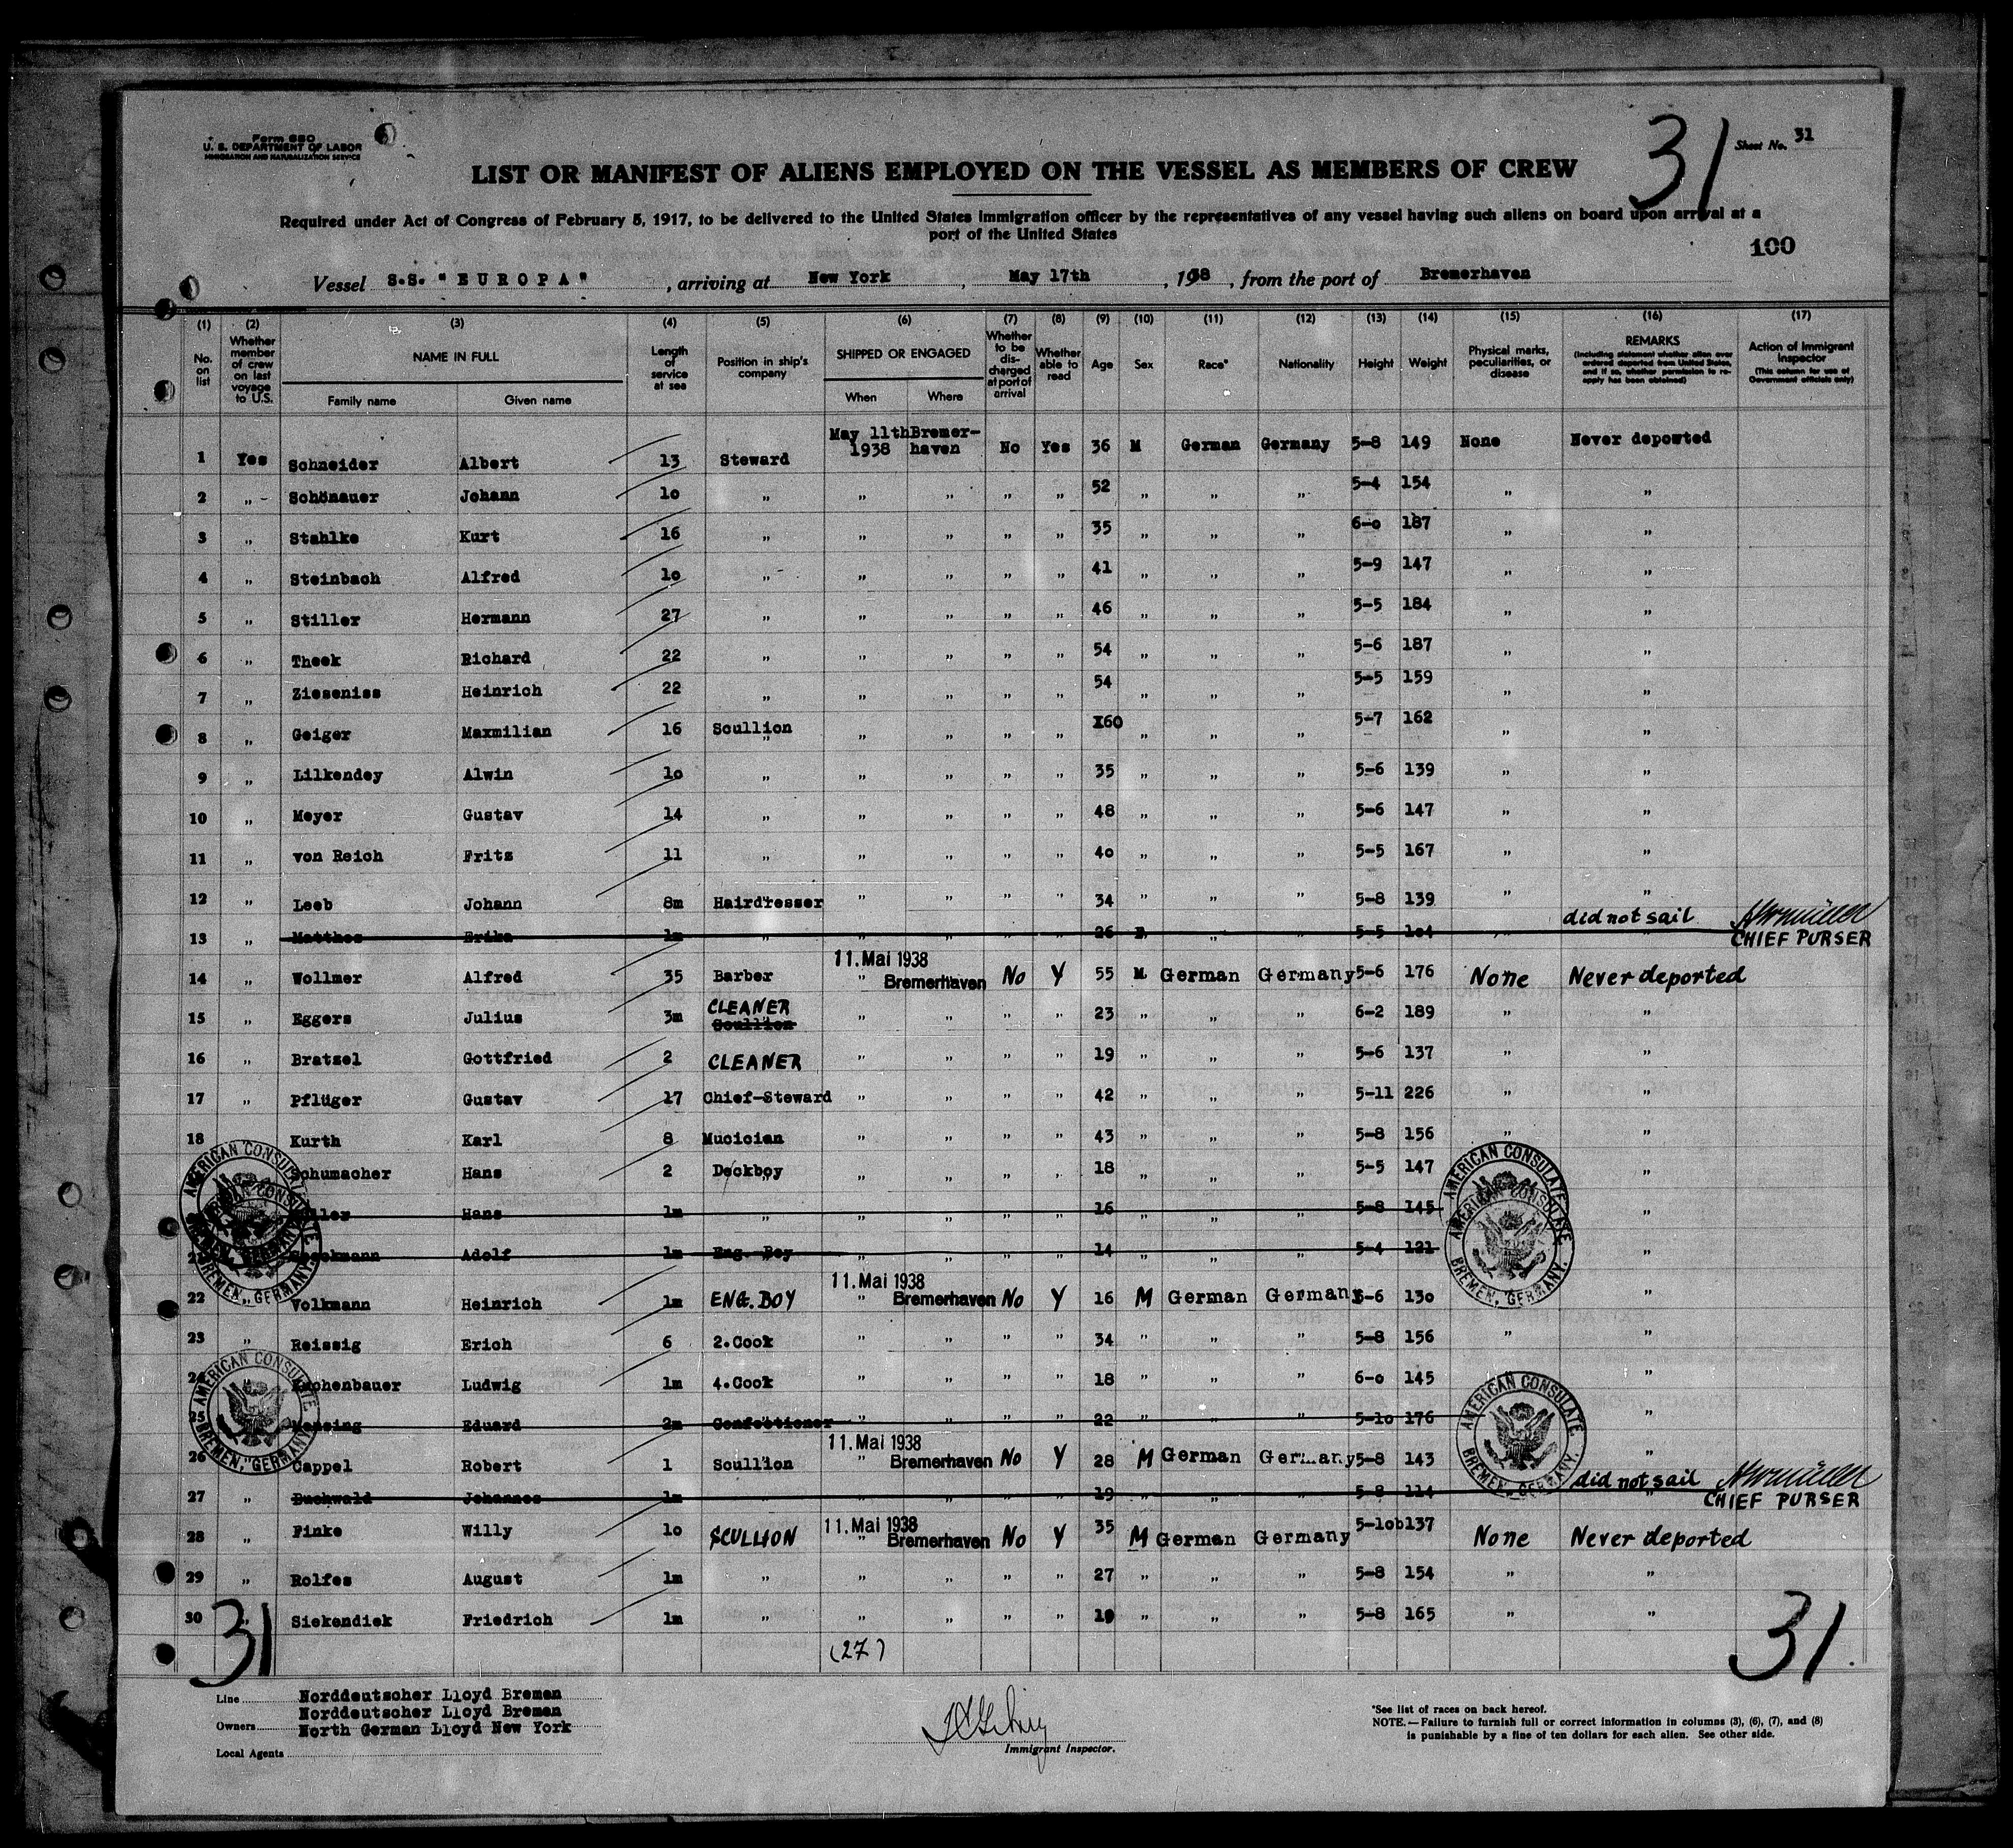 Form 680
U. S. DEPARTMENT OF LABOR
IMMIGRATION AND NATURALIZATION SERVICE
31
Sheet No. 31
LIST OR MANIFEST OF ALIENS EMPLOYED ON THE VESSEL AS MEMBERS OF CREW
Required under Act of Congress of February 5, 1917, to be delivered to the United States immigration officer by the representatives of any vessel having such aliens on board upon arrival at a
port of the United States
100
Vessel S.S. "EUROPA", arriving at New York, May 17th, 1938, from the port of Bremerhaven
(1) (2) (3) (4) (5) (6) (7) (8) (9) (10) (11) (12) (13) (14) (15) (16) (17)
No. on list | Whether member of crew on last voyage to U.S. | NAME IN FULL | Length of service at sea | Position in ship's company | SHIPPED OR ENGAGED | Whether to be discharged at port of arrival | Whether able to read | Age | Sex | Race* | Nationality | Height | Weight | Physical marks, peculiarities, or disease | REMARKS (Including statement whether alien ever ordered deported from United States, and if so, whether permission to reapply has been obtained) | Action of Immigrant Inspector (This column for use of Government officials only)
Family name | Given name | When | Where
1 Yes Schneider Albert 13 Steward May 11th 1938 Bremer-haven No Yes 36 M German Germany 5-8 149 None Never deported
2 " Schönauer Johann 10 " " " " " 52 " " " 5-4 154 " "
3 " Stahlke Kurt 16 " " " " " 35 " " " 6-0 187 " "
4 " Steinbach Alfred 10 " " " " " 41 " " " 5-9 147 " "
5 " Stiller Hermann 27 " " " " " 46 " " " 5-5 184 " "
6 " Theek Richard 22 " " " " " 54 " " " 5-6 187 " "
7 " Zieseniss Heinrich 22 " " " " " 54 " " " 5-5 159 " "
8 " Geiger Maxmilian 16 Scullion " " " " X60 " " " 5-7 162 " "
9 " Lilkendey Alwin 10 " " " " " 35 " " " 5-6 139 " "
10 " Meyer Gustav 14 " " " " " 48 " " " 5-6 147 " "
11 " von Reich Fritz 11 " " " " " 40 " " " 5-5 167 " "
12 " Leeb Johann 8m Hairdresser " " " " 34 " " " 5-8 139 " "
13 " Matthes Erika 1m " " " " " 26 F. " " 5-5 104 " did not sail
CHIEF PURSER
14 " Wollmer Alfred 35 Barber 11. Mai 1938 Bremerhaven No Y 55 M German Germany 5-6 176 None Never deported
15 " Eggers Julius 3m CLEANER Scullion " " " " 23 " " " 6-2 189 " "
16 " Bratzel Gottfried 2 CLEANER " " " " 19 " " " 5-6 137 " "
17 " Pflüger Gustav 17 Chief-Steward " " " " 42 " " " 5-11 226 " "
18 Kurth Karl 8 Mucician " " " " 43 " " " 5-8 156 " "
Schumacher Hans 2 Deckboy " " " " 18 " " " 5-5 147 "
Hans 1m " " " " " 16 " " " 5-8 145 "
Adolf 1m Eng. Boy " " " " 14 " " " 5-4 121 "
22 Volkmann Heinrich 1m ENG. BOY 11. Mai 1938 Bremerhaven No Y 16 M German Germany 5-6 130 "
23 " Reissig Erich 6 2.Cook " " " " 34 " " " 5-8 156 " "
Ludwig 1m 4.Cook " " " " 18 " " " 6-0 145 "
25 Eduard 2m Confectioner " " " " 22 " " " 5-10 176 "
26 Cappel Robert 1 Scullion 11. Mai 1938 Bremerhaven No Y 28 M German Germany 5-8 143 "
27 " Buchwald Johannes 1m " " " " " 19 " " " 5-8 114 did not sail
CHIEF PURSER
28 " Finke Willy 10 SCULLION 11. Mai 1938 Bremerhaven No Y 35 M German Germany 5-10b 137 None Never deported
29 " Rolfes August 1m " " " " " 27 " " " 5-8 154 " "
30 " Siekendiek Friedrich 1m " " " " " 19 " " " 5-8 165 " "
AMERICAN CONSULATE BREMEN, GERMANY.
AMERICAN CONSULATE BREMEN, GERMANY.
AMERICAN CONSULATE BREMEN, GERMANY.
AMERICAN CONSULATE BREMEN, GERMANY.
AMERICAN CONSULATE BREMEN, GERMANY.
AMERICAN CONSULATE BREMEN, GERMANY.
31
(27)
31
Line Norddeutscher Lloyd Bremen
Norddeutscher Lloyd Bremen
Owners North German Lloyd New York
Local Agents
Immigrant Inspector.
*See list of races on back hereof.
NOTE.—Failure to furnish full or correct information in columns (3), (6), (7), and (8)
is punishable by a fine of ten dollars for each alien. See other side.